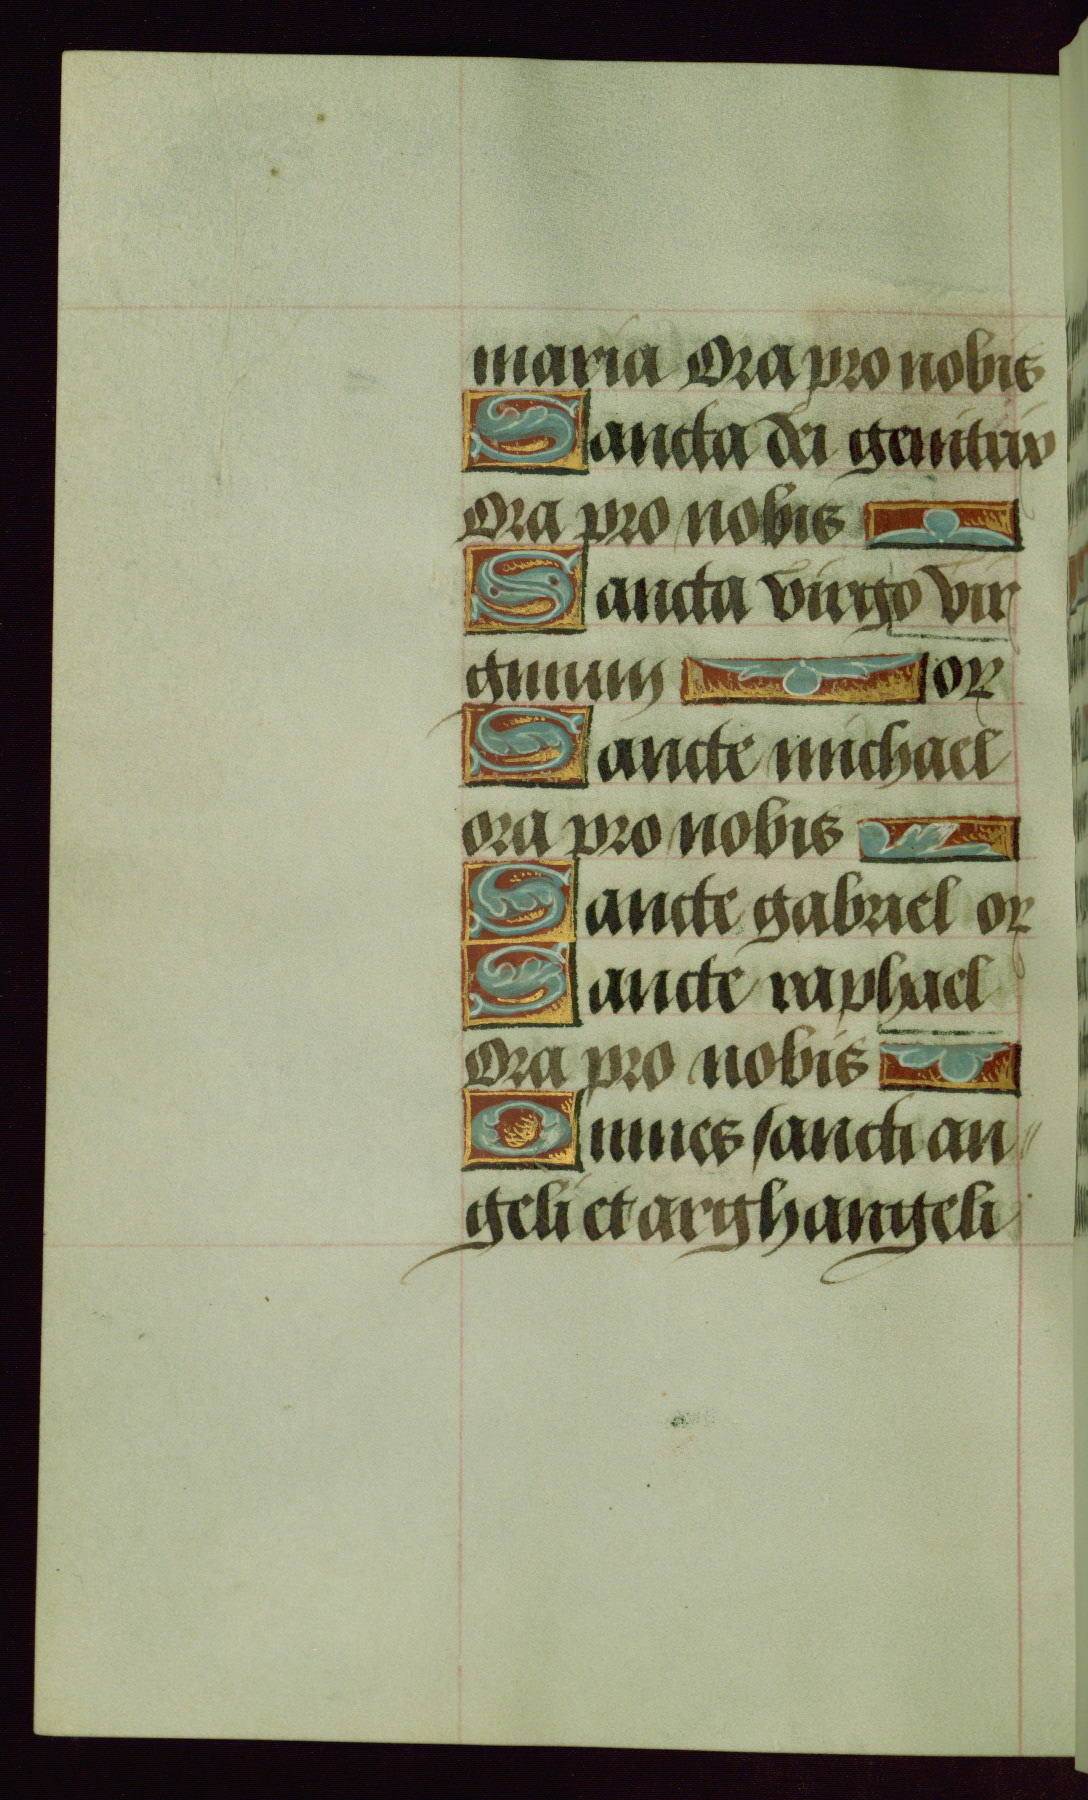 maria Ora pro nobis
Sancta dei genitrix
Ora pro nobis
Sancta virgo vir
ginum or
Sancte michael
ora pro nobis
Sancte gabriel or
Sancte raphael
Ora pro nobis
Omnes sancti an
geli et arghangeli